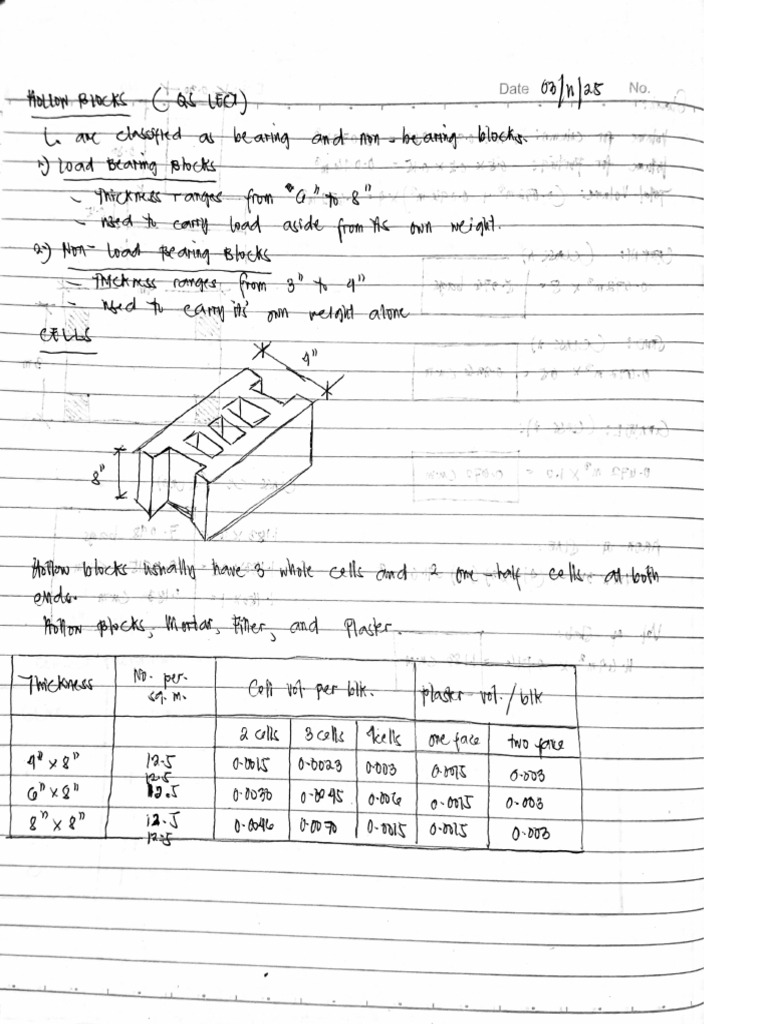 Date 03/11/25 No.
HOLLOW BLOCKS - ( QS LEC1)
are classified as bearing and non-bearing blocks.
1) Load Bearing Blocks
- Thickness ranges from "6" to 8"
- used to carry load aside from its own weight.
2) Non-Load Bearing Blocks
- Thickness ranges from 3" to 4"
- used to carry its' own weight alone
CELLS
4"
8"
Hollow blocks usually have 3 whole cells and 2 one-half cells at both
ends.
Hollow Blocks, Mortar, Filler, and Plaster.
Thickness No. per. sq. m. Cell vol per blk. plaster vol. / blk
2 cells 3 cells 4cells one face two face
4" x 8" 12.5 0.0015 0.0023 0.003 0.0015 0.003
12.5
6" x 8" 12.5 0.0030 0.0045 0.006 0.0015 0.003
8" x 8" 12.5 0.0046 0.0070 0.0015 0.0015 0.003
12.5